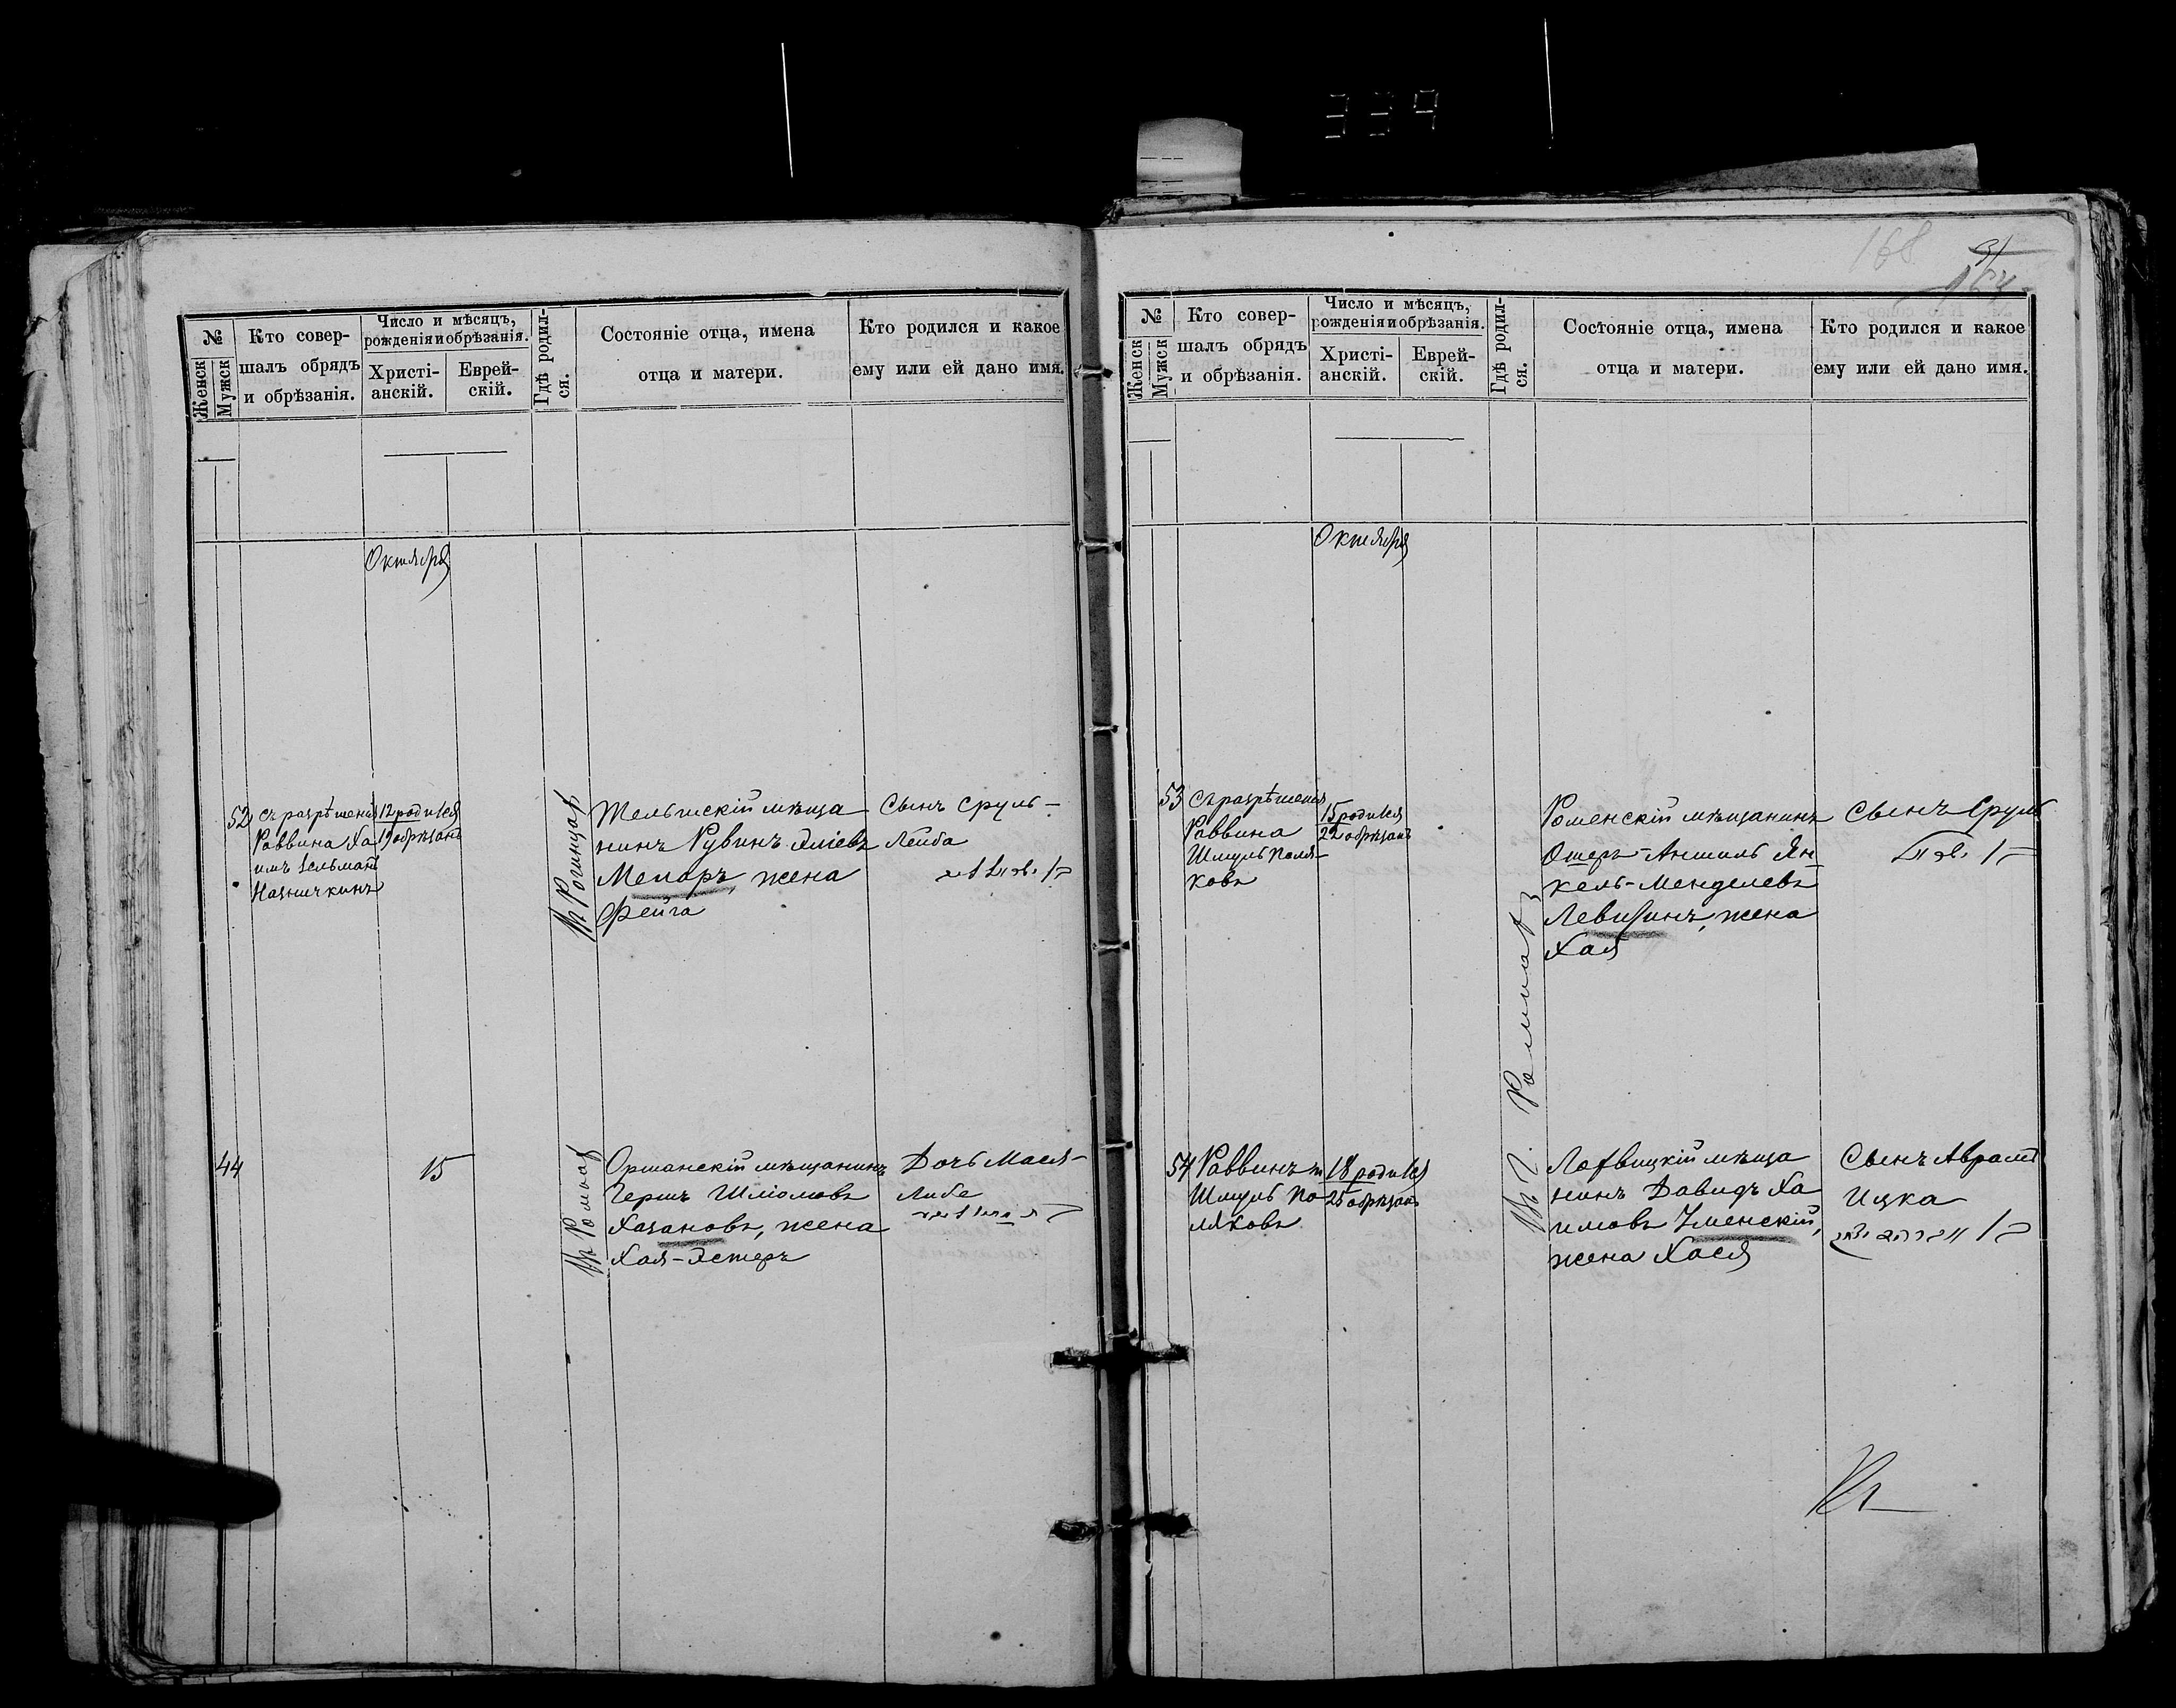 339
168
31
164
№
Женск
Мужск
Кто совер-
шалъ обрядъ
и обрѣзанія.
Число и мѣсяцъ,
рожденія и обрѣзанія.
Христі-
анскій.
Еврей-
скій.
Гдѣ родил-
ся.
Состояніе отца, имена
отца и матери.
Кто родился и какое
ему или ей дано имя.
Октября
52
Съ разрѣшенія
Раввина Ха
имъ Зельманъ
12 родился
19 обрѣзанъ
Тельшскій мѣща
нинъ Рувинъ Эліевъ
Мепаръ, жена
Фейга
Сынъ Сруль-
Лейба
44
15
Въ Ромнах
Оршанскій мѣщанинъ
Гершъ Шліомовъ
Хазановъ, жена
Хая-Эстеръ
Дочь Мася-
Либе
№
Женск
Мужск
Кто совер-
шалъ обрядъ
и обрѣзанія.
Число и мѣсяцъ,
рожденія и обрѣзанія.
Христі-
анскій.
Еврей-
скій.
Гдѣ родил-
ся.
Состояніе отца, имена
отца и матери.
Кто родился и какое
ему или ей дано имя.
Октября
53
Съ разрѣшенія
Раввина
Шмуль Поля-
ковъ
15 родился
22 обрѣзанъ
Въ г. Ромнах
Роменскій мѣщанинъ
Ошеръ-Аншиль Ян
кель-Менделевъ
Левитинъ, жена
Хая
Сынъ Сруль
54
Раввинъ
Шмуль По
ляковъ
18 родился
25 обрѣзанъ
Лохвицкій мѣща
нинъ Давидъ Ха
имовъ Уменскій,
жена Хася
Сынъ Аврамъ
Ицка